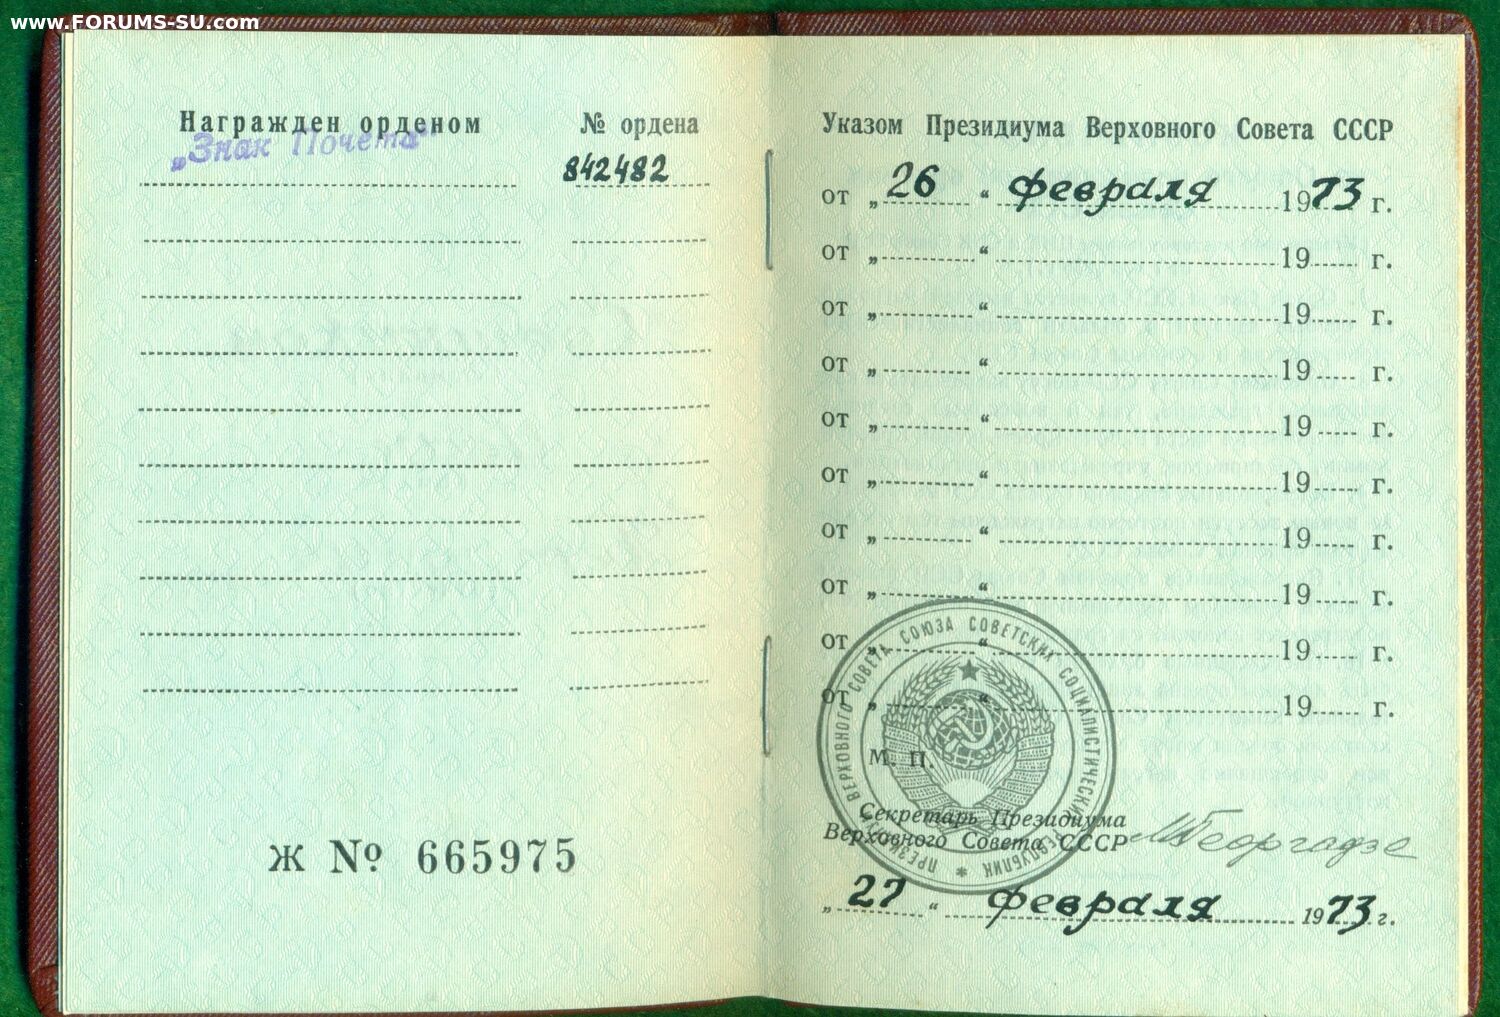 www.FORUMS-SU.com
Награжден орденом
№ ордена
„Знак Почета“
842482
Ж № 665975
Указом Президиума Верховного Совета СССР
от „ 26 “ февраля 1973 г.
от „ “ 19 г.
от „ “ 19 г.
от „ “ 19 г.
от „ “ 19 г.
от „ “ 19 г.
от „ “ 19 г.
от „ “ 19 г.
от „ “ 19 г.
от „ “ 19 г.
ПРЕЗИДИУМ ВЕРХОВНОГО СОВЕТА СОЮЗА СОВЕТСКИХ СОЦИАЛИСТИЧЕСКИХ РЕСПУБЛИК *
М. П.
Секретарь Президиума
Верховного Совета СССР
МГеоргадзе
„ 27 “ февраля 1973 г.